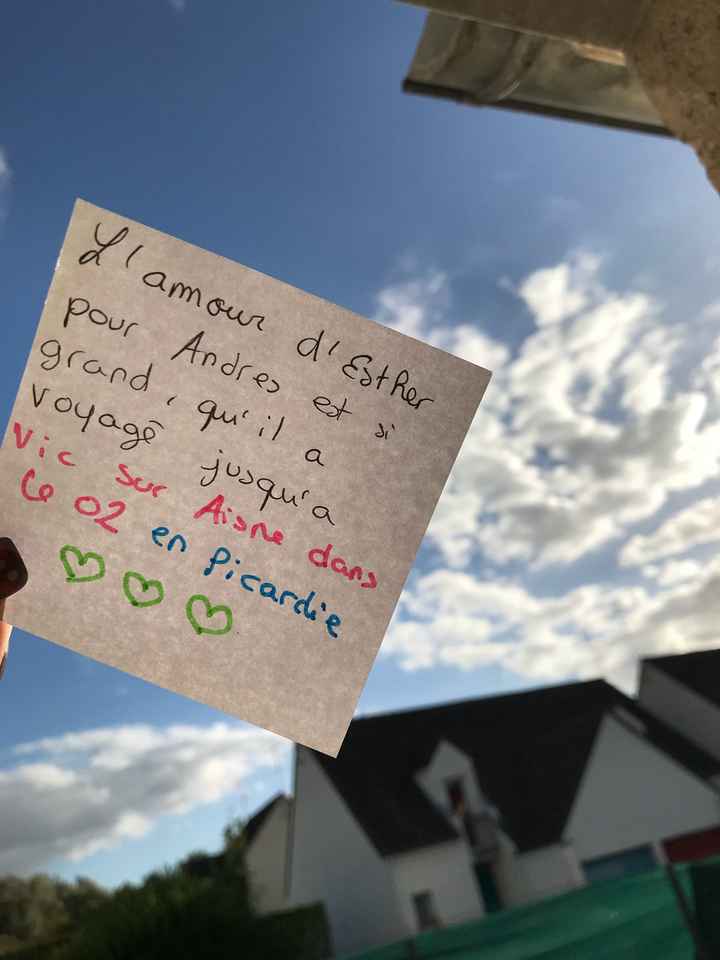 L'amour d'Esther
pour Andres est si
grand, qu'il a
voyagé jusqu'a
Vic sur Aisne dans
le 02 en Picardie